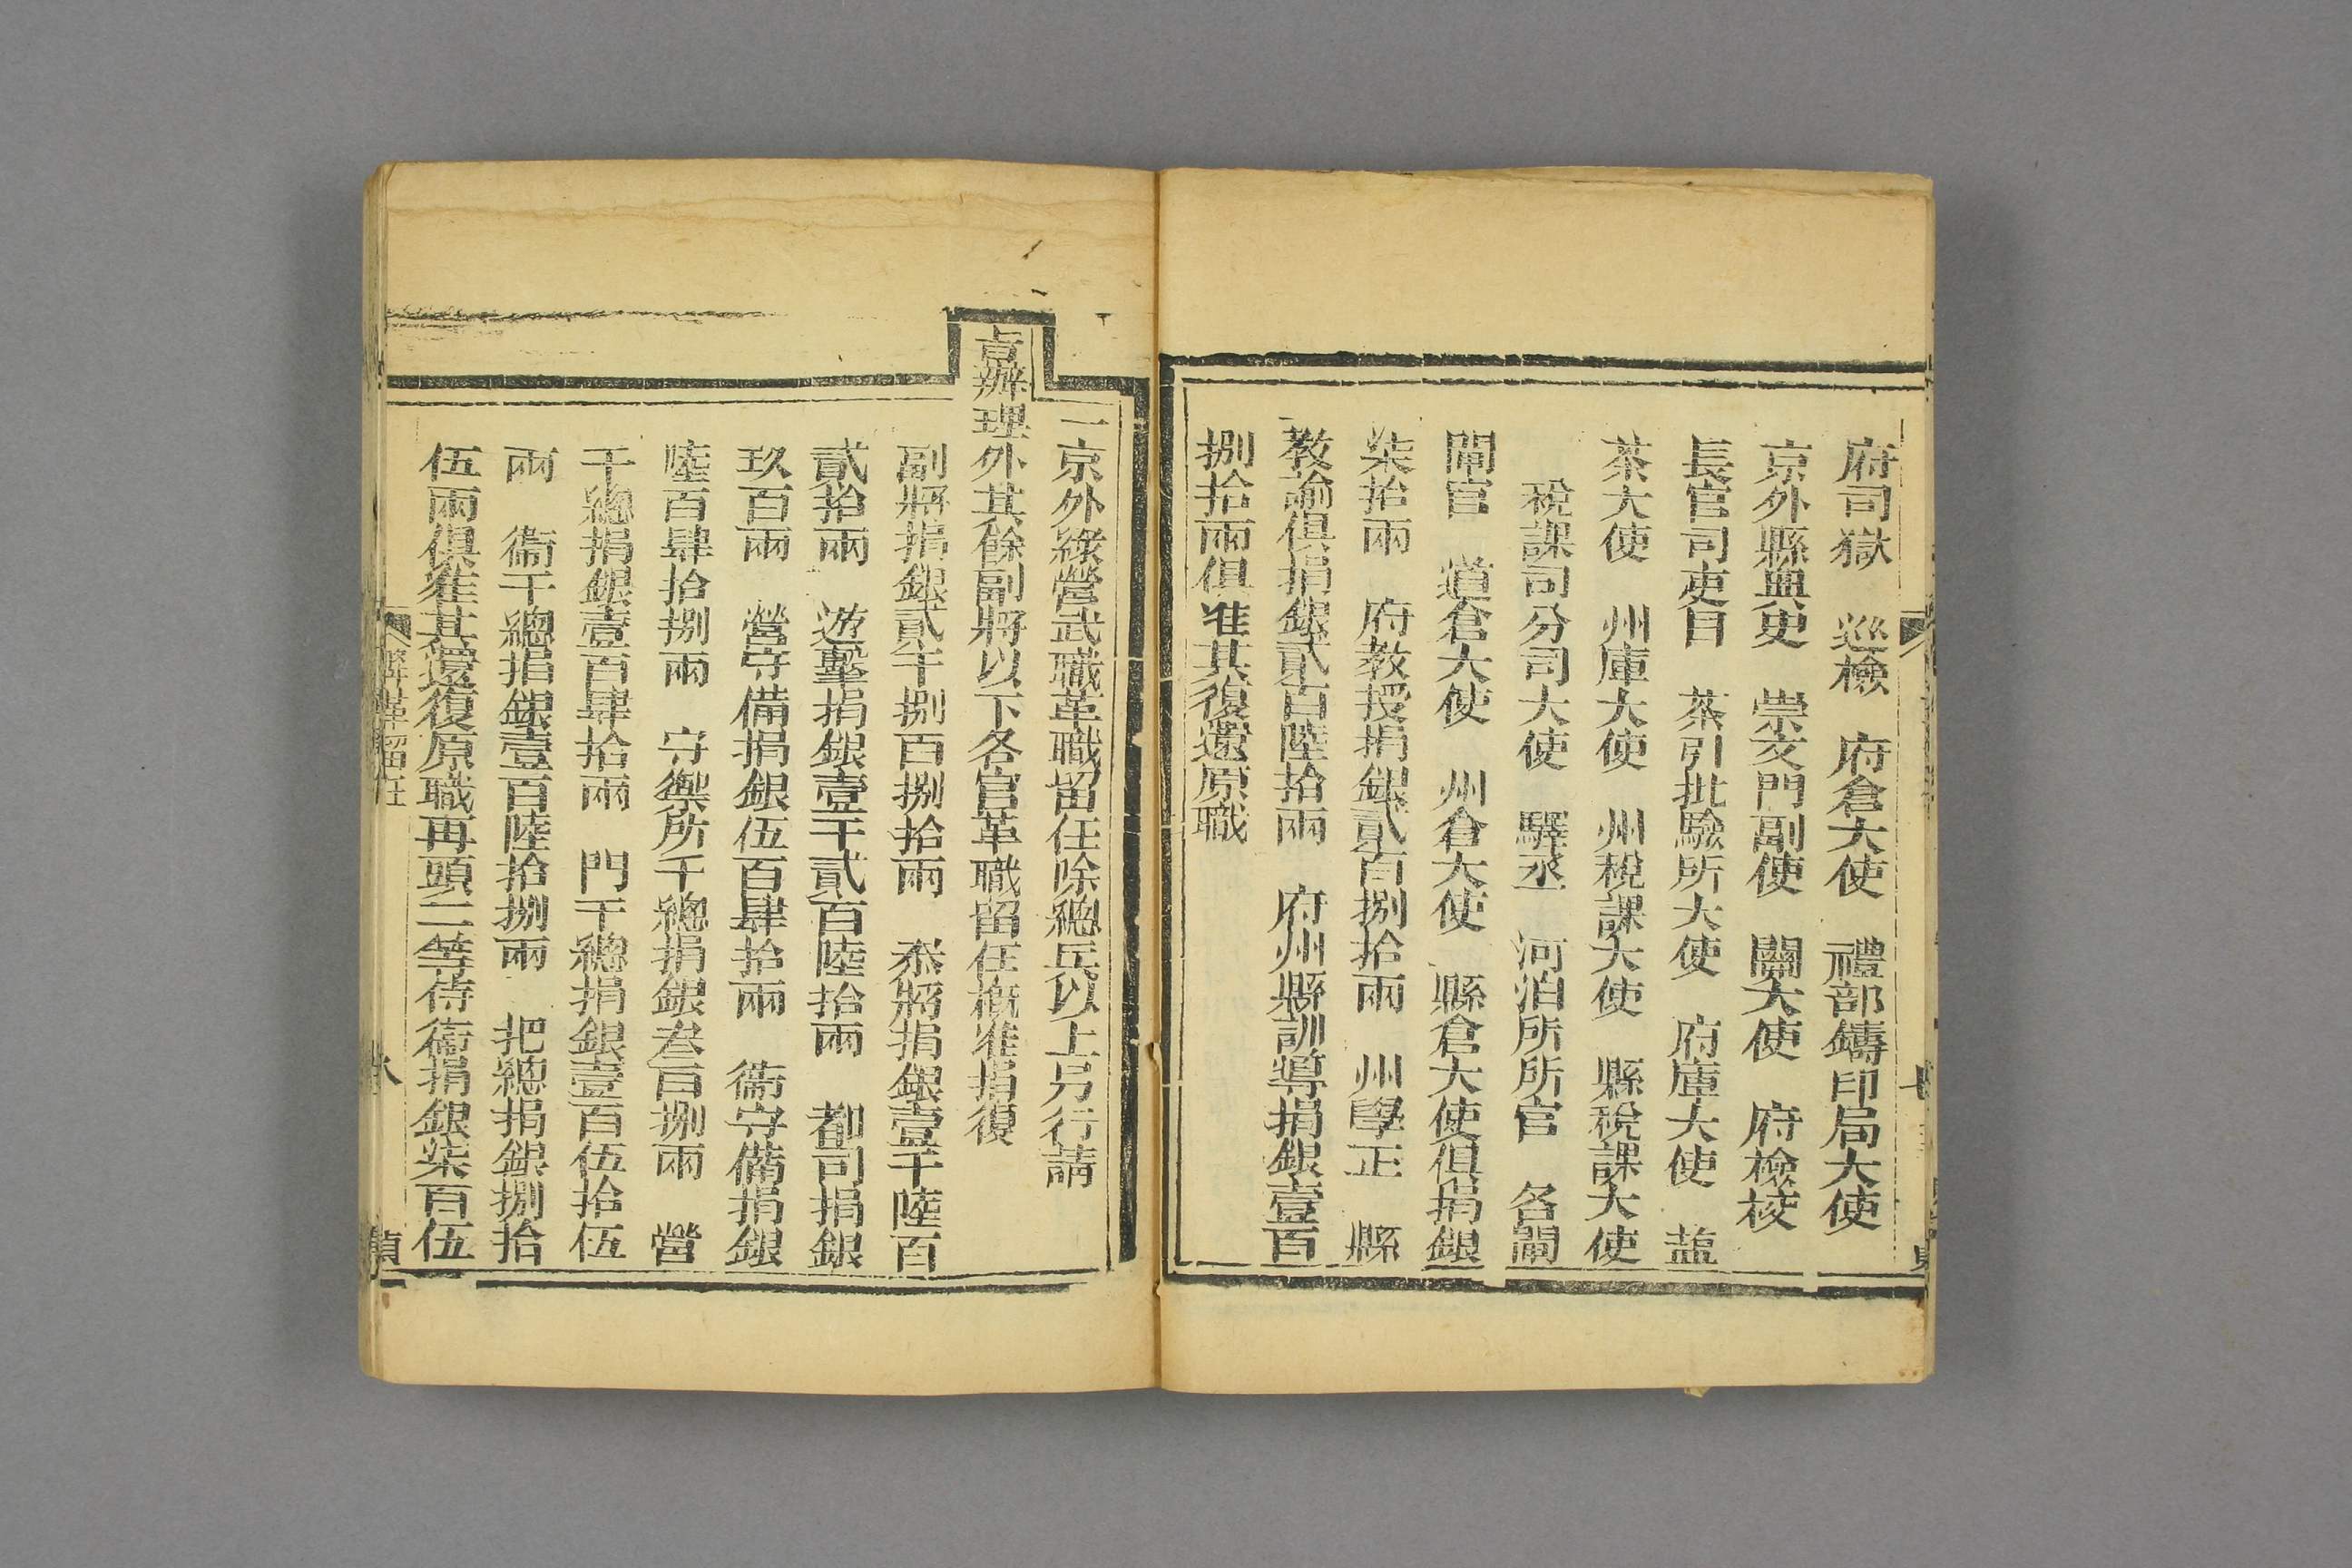 府司獄　巡檢　府倉大使　禮部鑄印局大使
京外縣典史　崇文門副使　關大使　府檢校
長官司吏目　茶引批驗所大使　府庫大使　鹽
茶大使　州庫大使　州稅課大使　縣稅課大使
稅課司分司大使　驛丞　河泊所所官　各閘
閘官　道倉大使　州倉大使　縣倉大使俱捐銀
柒拾兩　府教授捐銀貳百捌拾兩　州學正　縣
教諭俱捐銀貳百陸拾兩　府州縣訓導捐銀壹百
捌拾兩俱准其復還原職
一京外綠營武職革職留任除總兵以上另行請
旨辦理外其餘副將以下各官革職留任概准捐復
副將捐銀貳千捌百捌拾兩　叅將捐銀壹千陸百
貳拾兩　遊擊捐銀壹千貳百陸拾兩　都司捐銀
玖百兩　營守備捐銀伍百肆拾兩　衞守備捐銀
陸百肆拾捌兩　守禦所千總捐銀叁百捌兩　營
千總捐銀壹百肆拾兩　門千總捐銀壹百伍拾伍
兩　衞千總捐銀壹百陸拾捌兩　把總捐銀捌拾
伍兩俱准其還復原職再頭二等侍衞捐銀柒百伍
革留任